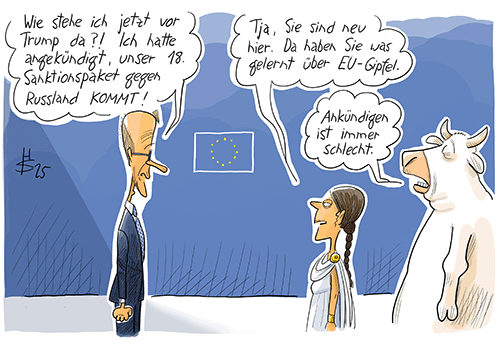 Wie stehe ich jetzt vor
Trump da?! Ich hatte
angekündigt, unser 18.
Sanktionspaket gegen
Russland KOMMT!
Tja, Sie sind neu
hier. Da haben Sie was
gelernt über EU-Gipfel.
Ankündigen
ist immer
schlecht.
25